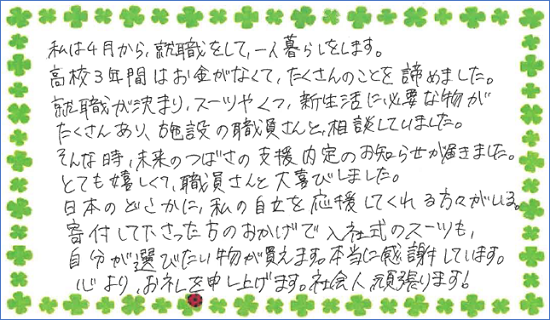 私は4月から、就職をして、一人暮らしをします。
高校3年間はお金がなくて、たくさんのことを諦めました。
就職が決まり、スーツやくつ、新生活に必要な物が
たくさんあり、施設の職員さんと、相談していました。
そんな時、未来のつばさの支援内定のお知らせが届きました。
とても嬉しくて、職員さんと大喜びしました。
日本のどこかに、私の自立を応援してくれる方々がいる。
寄付して下さった方のおかげで入社式のスーツも、
自分が選びたい物が買えます。本当に感謝しています。
心より、お礼を申し上げます。社会人頑張ります!